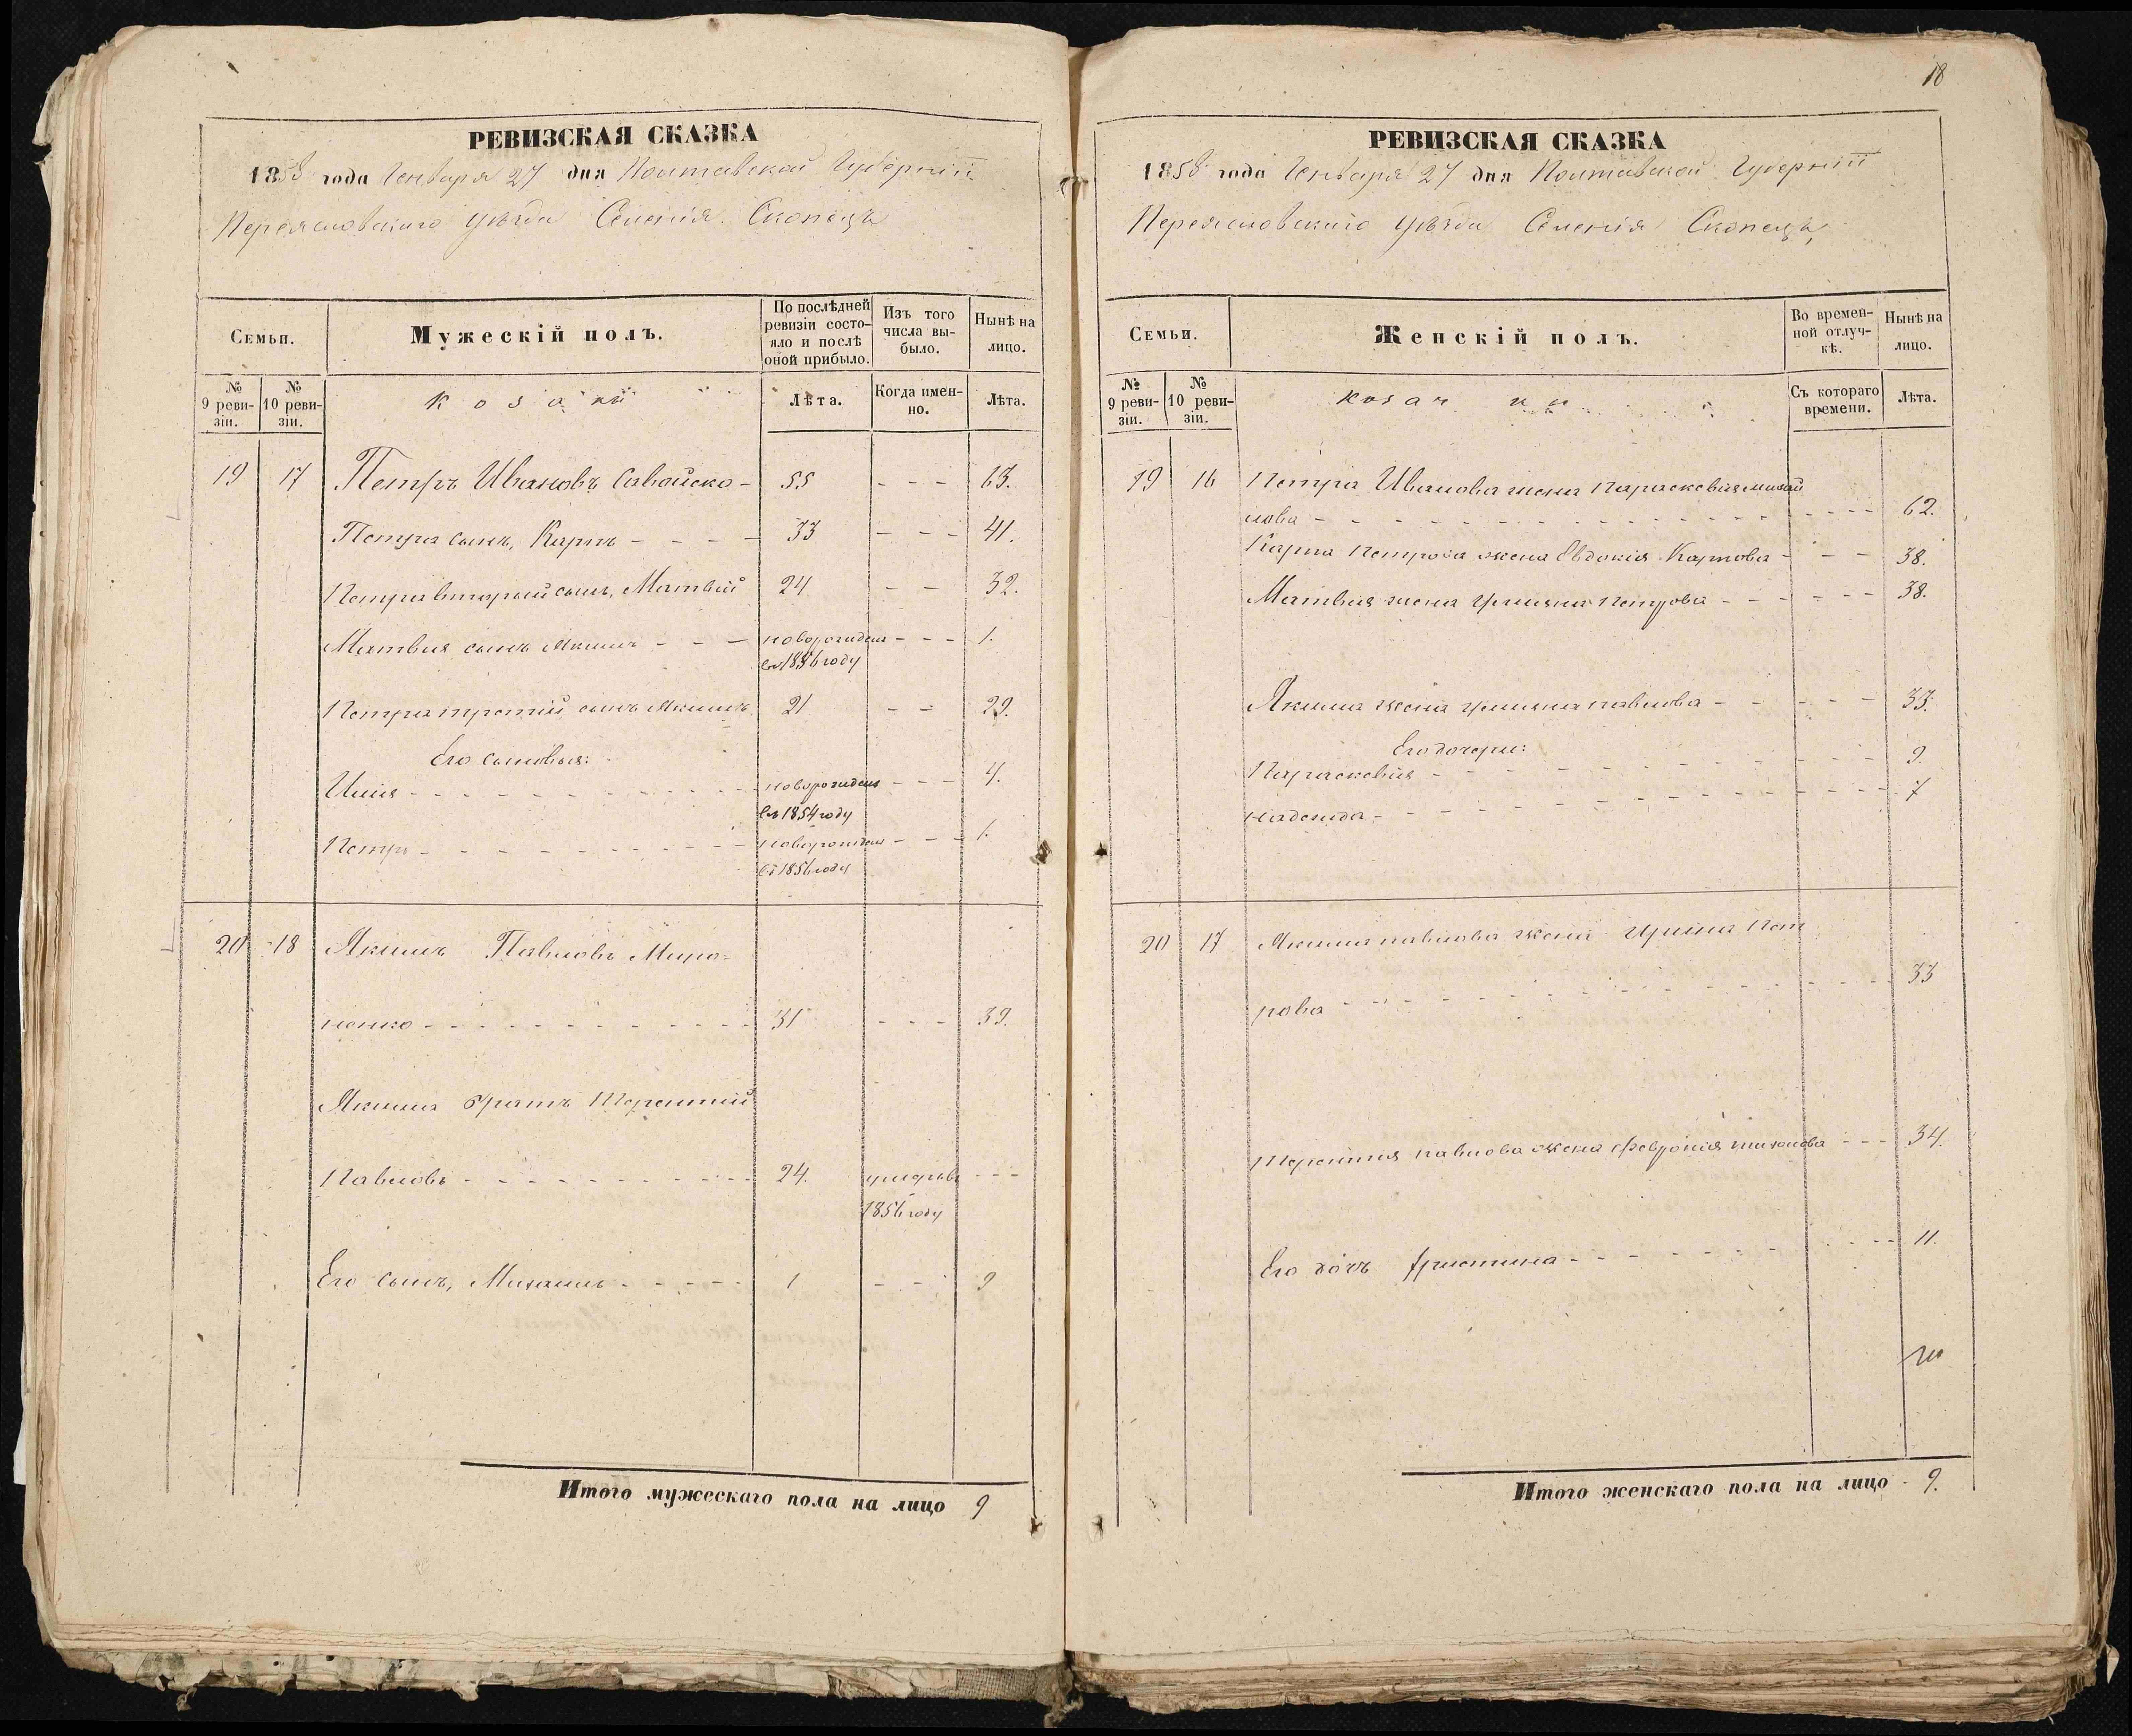 РЕВИЗСКАЯ СКАЗКА
1858 года Генваря 27 дня Полтавской Губерніи
Переясловскаго уѣзда Селенія Скопецъ
Семьи.
Мужескій полъ.
По послѣдней ревизіи состо-
яло и послѣ
оной прибыло.
Изъ того
числа вы-
было.
Нынѣ на
лицо.
№ 9 реви-
зіи.
№ 10 реви-
зіи.
козаки
Лѣта.
Когда имен-
но.
Лѣта.
19 17 Петръ Ивановъ - 55 - - - 63.
Петра сынъ, Карпъ - - - - 33 - - - 41.
Петра вторый сынъ, Матвѣй 24 - - 32.
Матвѣя сынъ Якимъ - - - новорожден - - - 1.
въ 1856 году
Петра третій сынъ Якимъ 21 - - 29.
Его сыновья:
Илія - - - новорожден - - - 4.
въ 1854 году
Петръ - - - новорожден - - - 1.
въ 1856 году
20 18 Якимъ Павловъ Миро=
ненко - - - 31 - - - 39.
Якима братъ Терентій
Павловъ - - - 24. умеръ въ - - -
1856 году
Его сынъ, Михаилъ - - - 1 - - - 9
Итого мужескаго пола на лицо 9
18
РЕВИЗСКАЯ СКАЗКА
1858 года Генваря 27 дня Полтавской Губерніи
Переясловскаго уѣзда Селенія Скопецъ,
Семьи.
Женскій полъ.
Во времен-
ной отлуч-
кѣ.
Нынѣ на
лицо.
№ 9 реви-
зіи.
№ 10 реви-
зіи.
козачки
Съ котораго
времени.
Лѣта.
19 16 Петра Иванова жена Параскевія Михай
лова - - - 62.
Карпа Петрова жена Евдокія Карпова - - - 38.
Матвѣя жена Ульяна Петрова - - - 38.
Якима жена Ульяна Павлова - - - 33.
Его дочери:
Параскевія - - - 9.
Надежда - - - 7
20 17 Якима Павлова жена Ирина Пет
рова - - - 33
Терентія Павлова жена Февронія Тихонова - - - 34.
Его дочь Христина - - - 11.
Итого женскаго пола на лицо - 9.